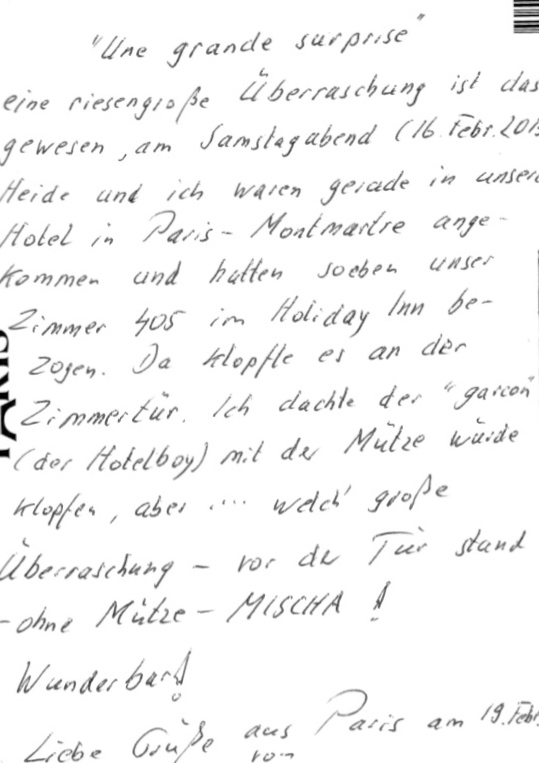 "Une grande surprise"
eine riesengroße Überraschung ist das
gewesen, am Samstagabend (16. Febr. 201
Heide und ich waren gerade in unser
Hotel in Paris - Montmartre ange-
kommen und hatten soeben unser
Zimmer 405 im Holiday Inn be-
zogen. Da klopfte es an der
Zimmertür. Ich dachte der "garcon"
(der Hotelboy) mit der Mütze würde
klopfen, aber .... welch' große
Überraschung - vor der Tür stand
- ohne Mütze - MISCHA !
Wunderbar!
Liebe Grüße aus Paris am 19. Febr.
von